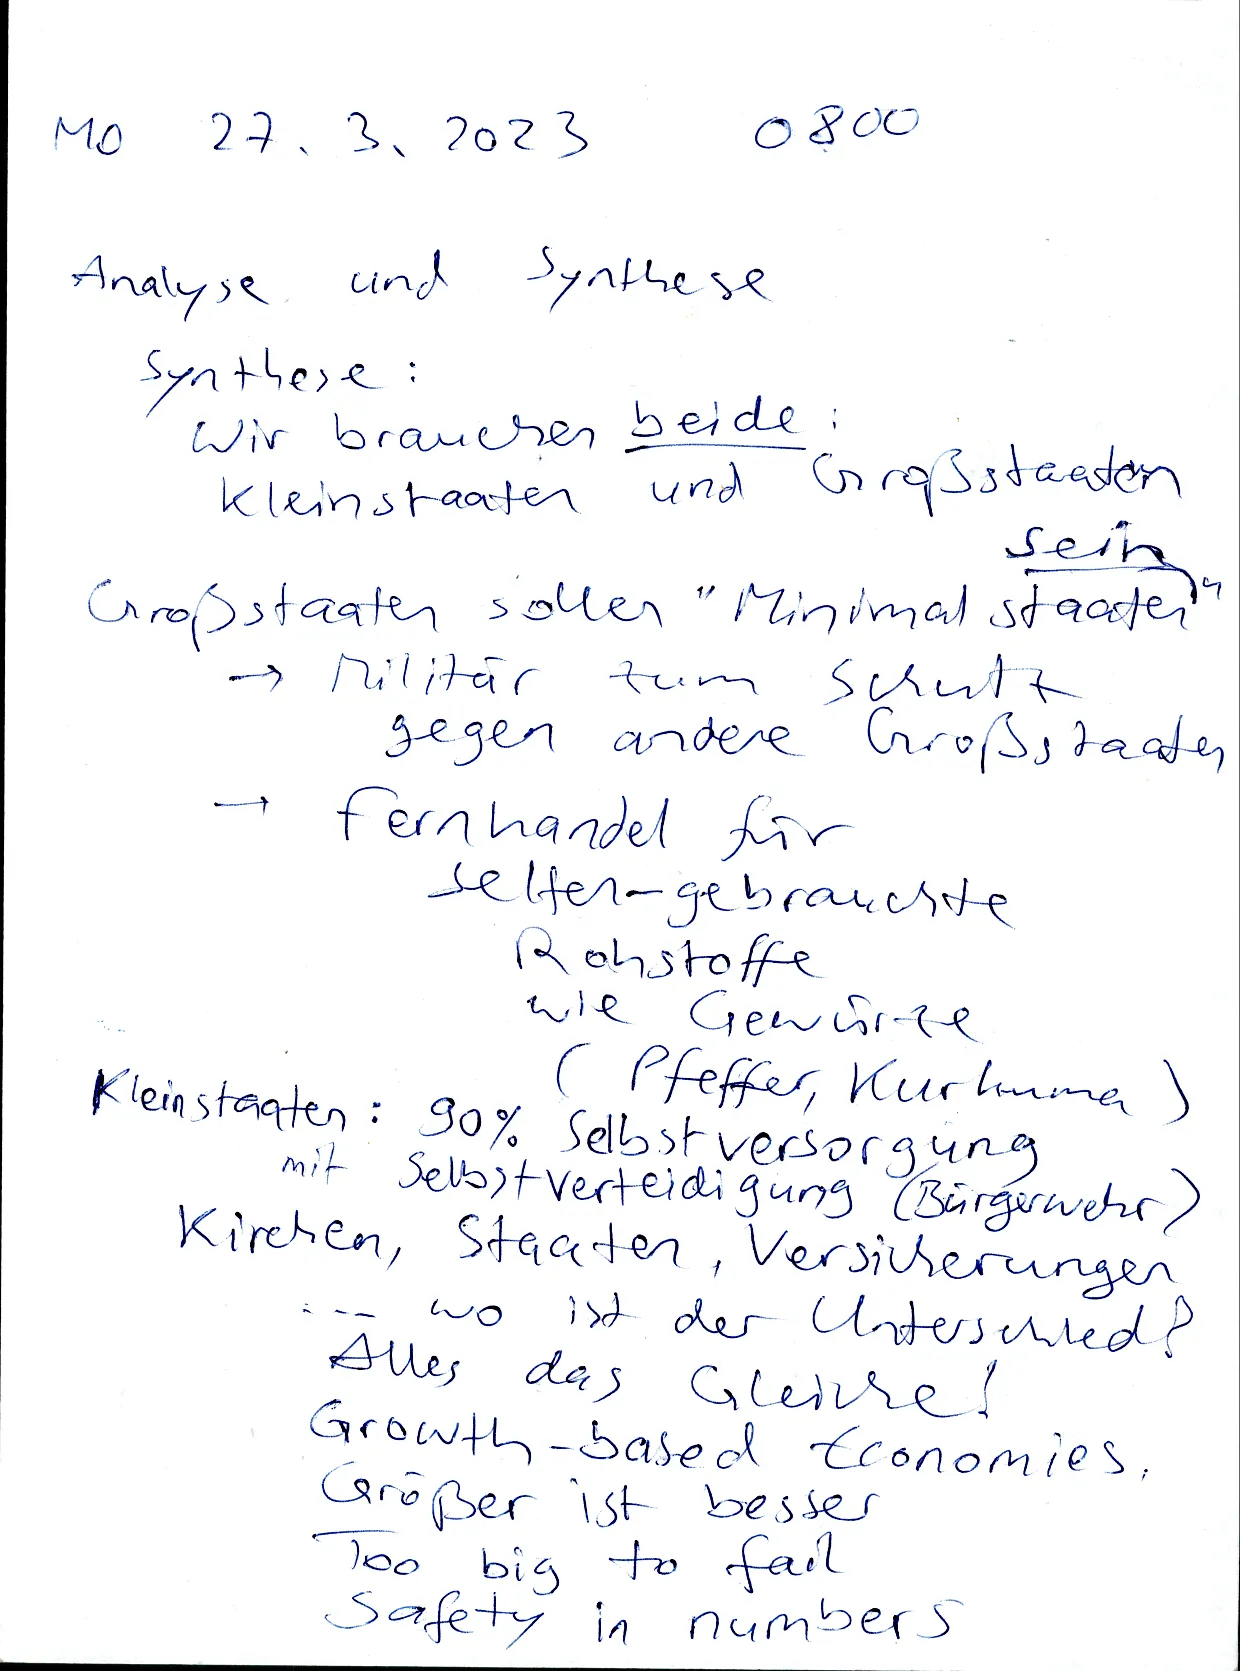 Mo 27. 3. 2023 0800
Analyse und Synthese
Synthese:
Wir brauchen beide:
Kleinstaaten und Großstaaten
sein
Großstaaten sollen "Minimalstaaten"
→ Militär zum Schutz
gegen andere Großstaaten
→ Fernhandel für
selten-gebrauchte
Rohstoffe
wie Gewürze
(Pfeffer, Kurkuma)
Kleinstaaten: 90% Selbstversorgung
mit Selbstverteidigung (Bürgerwehr)
Kirchen, Staaten, Versicherungen
... wo ist der Unterschied?
Alles das Gleiche!
Growth-based Economies.
Größer ist besser
Too big to fail
Safety in numbers